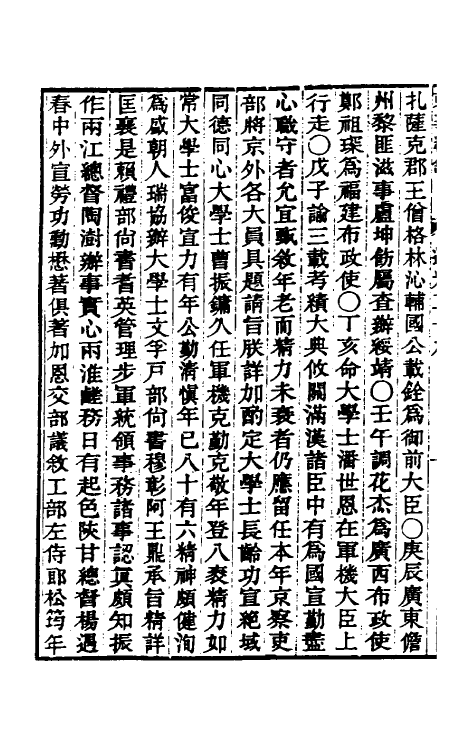 札薩克郡王僧格林沁輔國公載銓爲御前大臣○庚辰廣東儋
州黎匪滋事盧坤飭屬查辦綏靖○壬午調花杰爲廣西布政使
鄭祖琛爲福建布政使○丁亥命大學士潘世恩在軍機大臣上
行走○戊子諭三載考績大典攸關滿漢諸臣中有爲國宣勤盡
心職守者允宜甄敘年老而精力未衰者仍應留任本年京察吏
部將京外各大員具題請旨朕詳加酌定大學士長齡功宣絕域
同德同心大學士曹振鏞久任軍機克勤克敬年登八袠精力如
常大學士富俊宣力有年公勤淸愼年已八十有六精神頗健洵
爲盛朝人瑞協辦大學士文孚戸部尙書穆彰阿王鼎承旨精詳
匡襄是賴禮部尙書耆英管理步軍統領事務諸事認眞頗知振
作兩江總督陶澍辦事實心兩淮鹺務日有起色陝甘總督楊遇
春中外宣勞功勳懋著俱著加恩交部議敘工部左侍郎松筠年